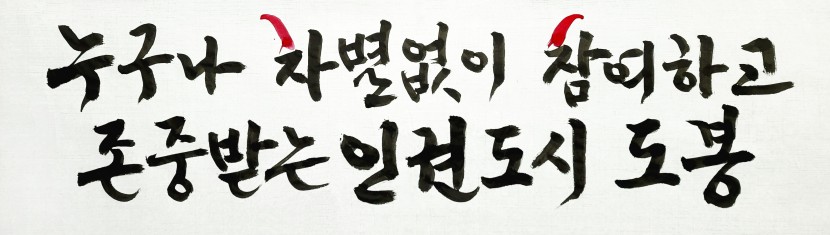 누구나 차별없이 참여하고
존중받는 인권도시 도봉